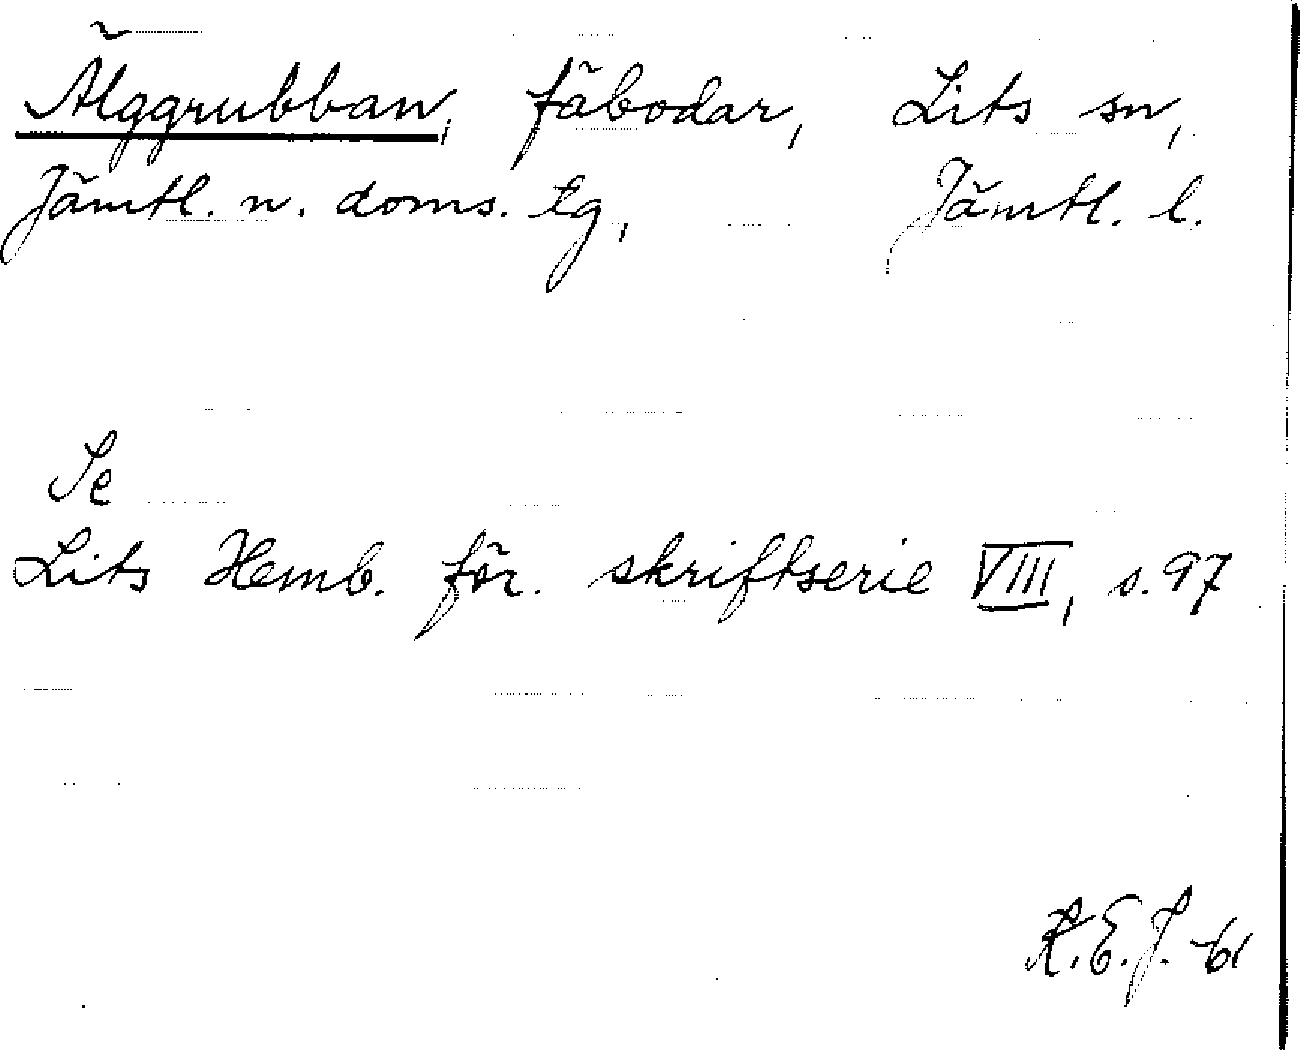 Älggrubban, fäbodar, Lits sn,
Jämtl. n. doms. tg, Jämtl. l.
Se
Lits Hemb. för. skriftserie VIII, s. 97
K.E.J. -61